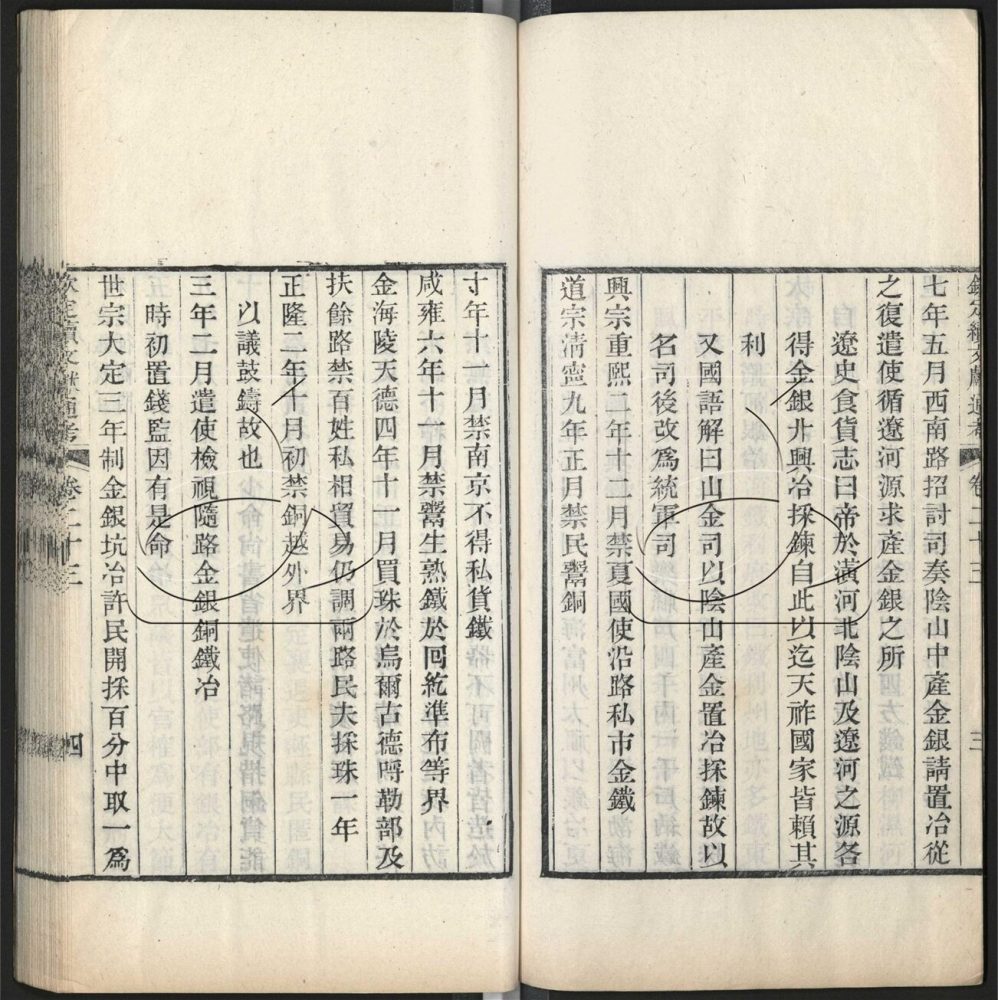 欽定續文獻通考 卷二十三 三
七年五月西南路招討司奏陰山中產金銀請置冶從
之復遣使循遼河源求產金銀之所
遼史食貨志曰帝於潢河北陰山及遼河之源各
得金銀卝興冶採鍊自此以迄天祚國家皆賴其
利
又國語解曰山金司以陰山產金置冶採鍊故以
名司後改爲統軍司
興宗重熙二年十二月禁夏國使沿路私市金鐵
道宗淸寧九年正月禁民鬻銅
寸年十一月禁南京不得私貨鐵
咸雍六年十一月禁鬻生熟鐵於回紇準布等界
金海陵天德四年十一月買珠於烏爾古德呼勒部及
扶餘路禁百姓私相貿易仍調兩路民夫採珠一年
正隆二年十月初禁銅越外界
以議鼓鑄故也
三年二月遣使檢視隨路金銀銅鐵冶
時初置錢監因有是命
世宗大定三年制金銀坑冶許民開採百分中取一爲
欽定續文獻通考 卷二十三 四